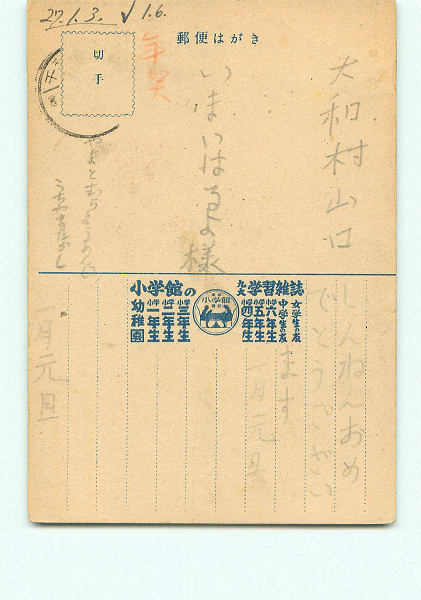 27.1.3. √ 1.6.
郵便はがき
切手
年賀
大和村山口
いまいはるよ様
小学館の九大学習雑誌
女学生の友
中学生の友
小学六年生
小学五年生
小学四年生
小学館
小学三年生
小学二年生
小学一年生
幼稚園
しんねんおめ
でとうござい
ます
一月元旦
月元旦